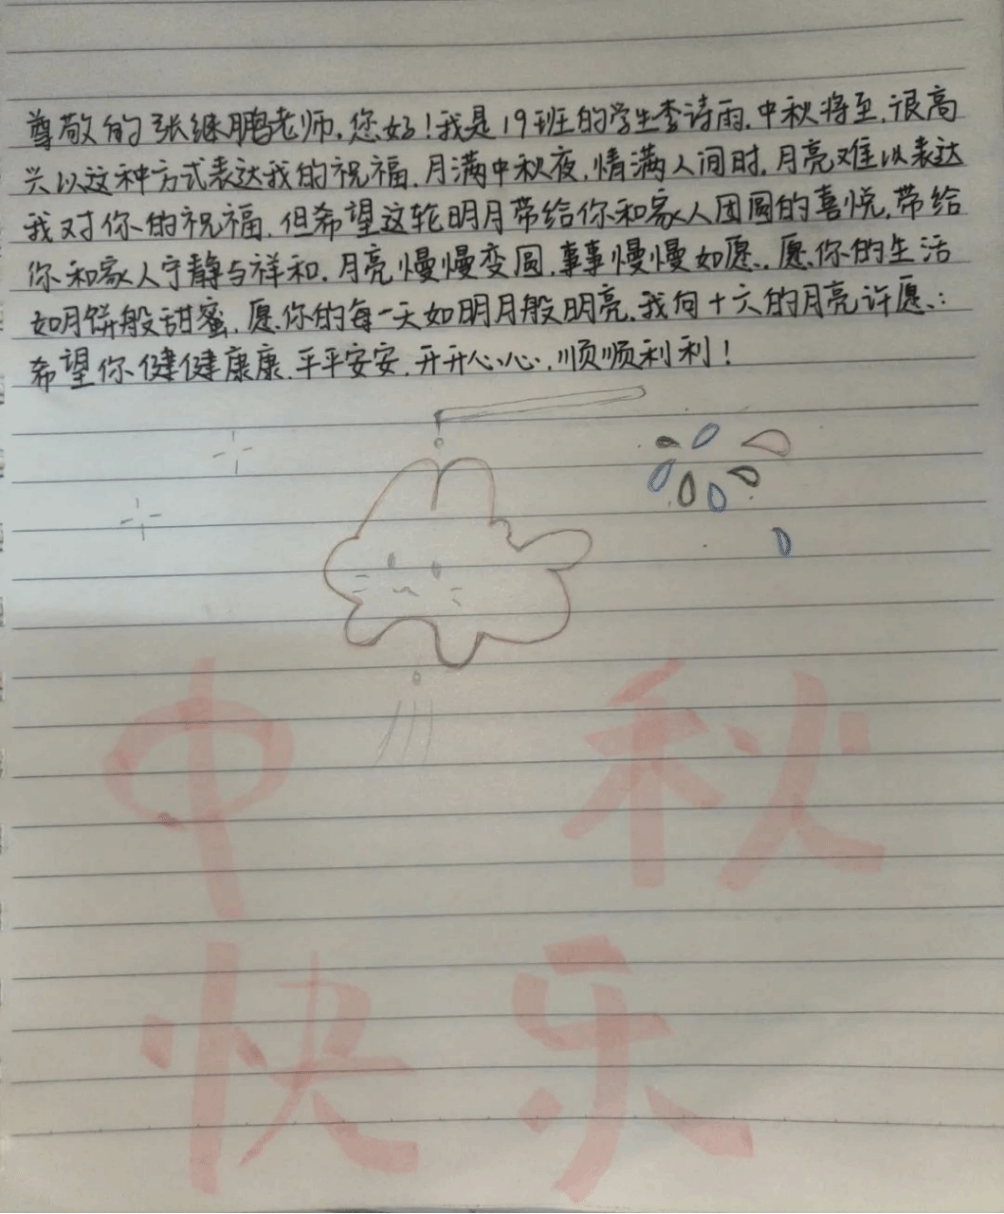 尊敬的张继鹏老师,您好!我是19班的学生李诗雨,中秋将至,很高
兴以这种方式表达我的祝福,月满中秋夜,情满人间时,月亮难以表达
我对你的祝福,但希望这轮明月带给你和家人团圆的喜悦,带给
你和家人宁静与祥和,月亮慢慢变圆,事事慢慢如愿,愿你的生活
如月饼般甜蜜,愿你的每一天如明月般明亮,我向十六的月亮许愿:
希望你健健康康,平平安安,开开心心,顺顺利利!
中秋
快乐